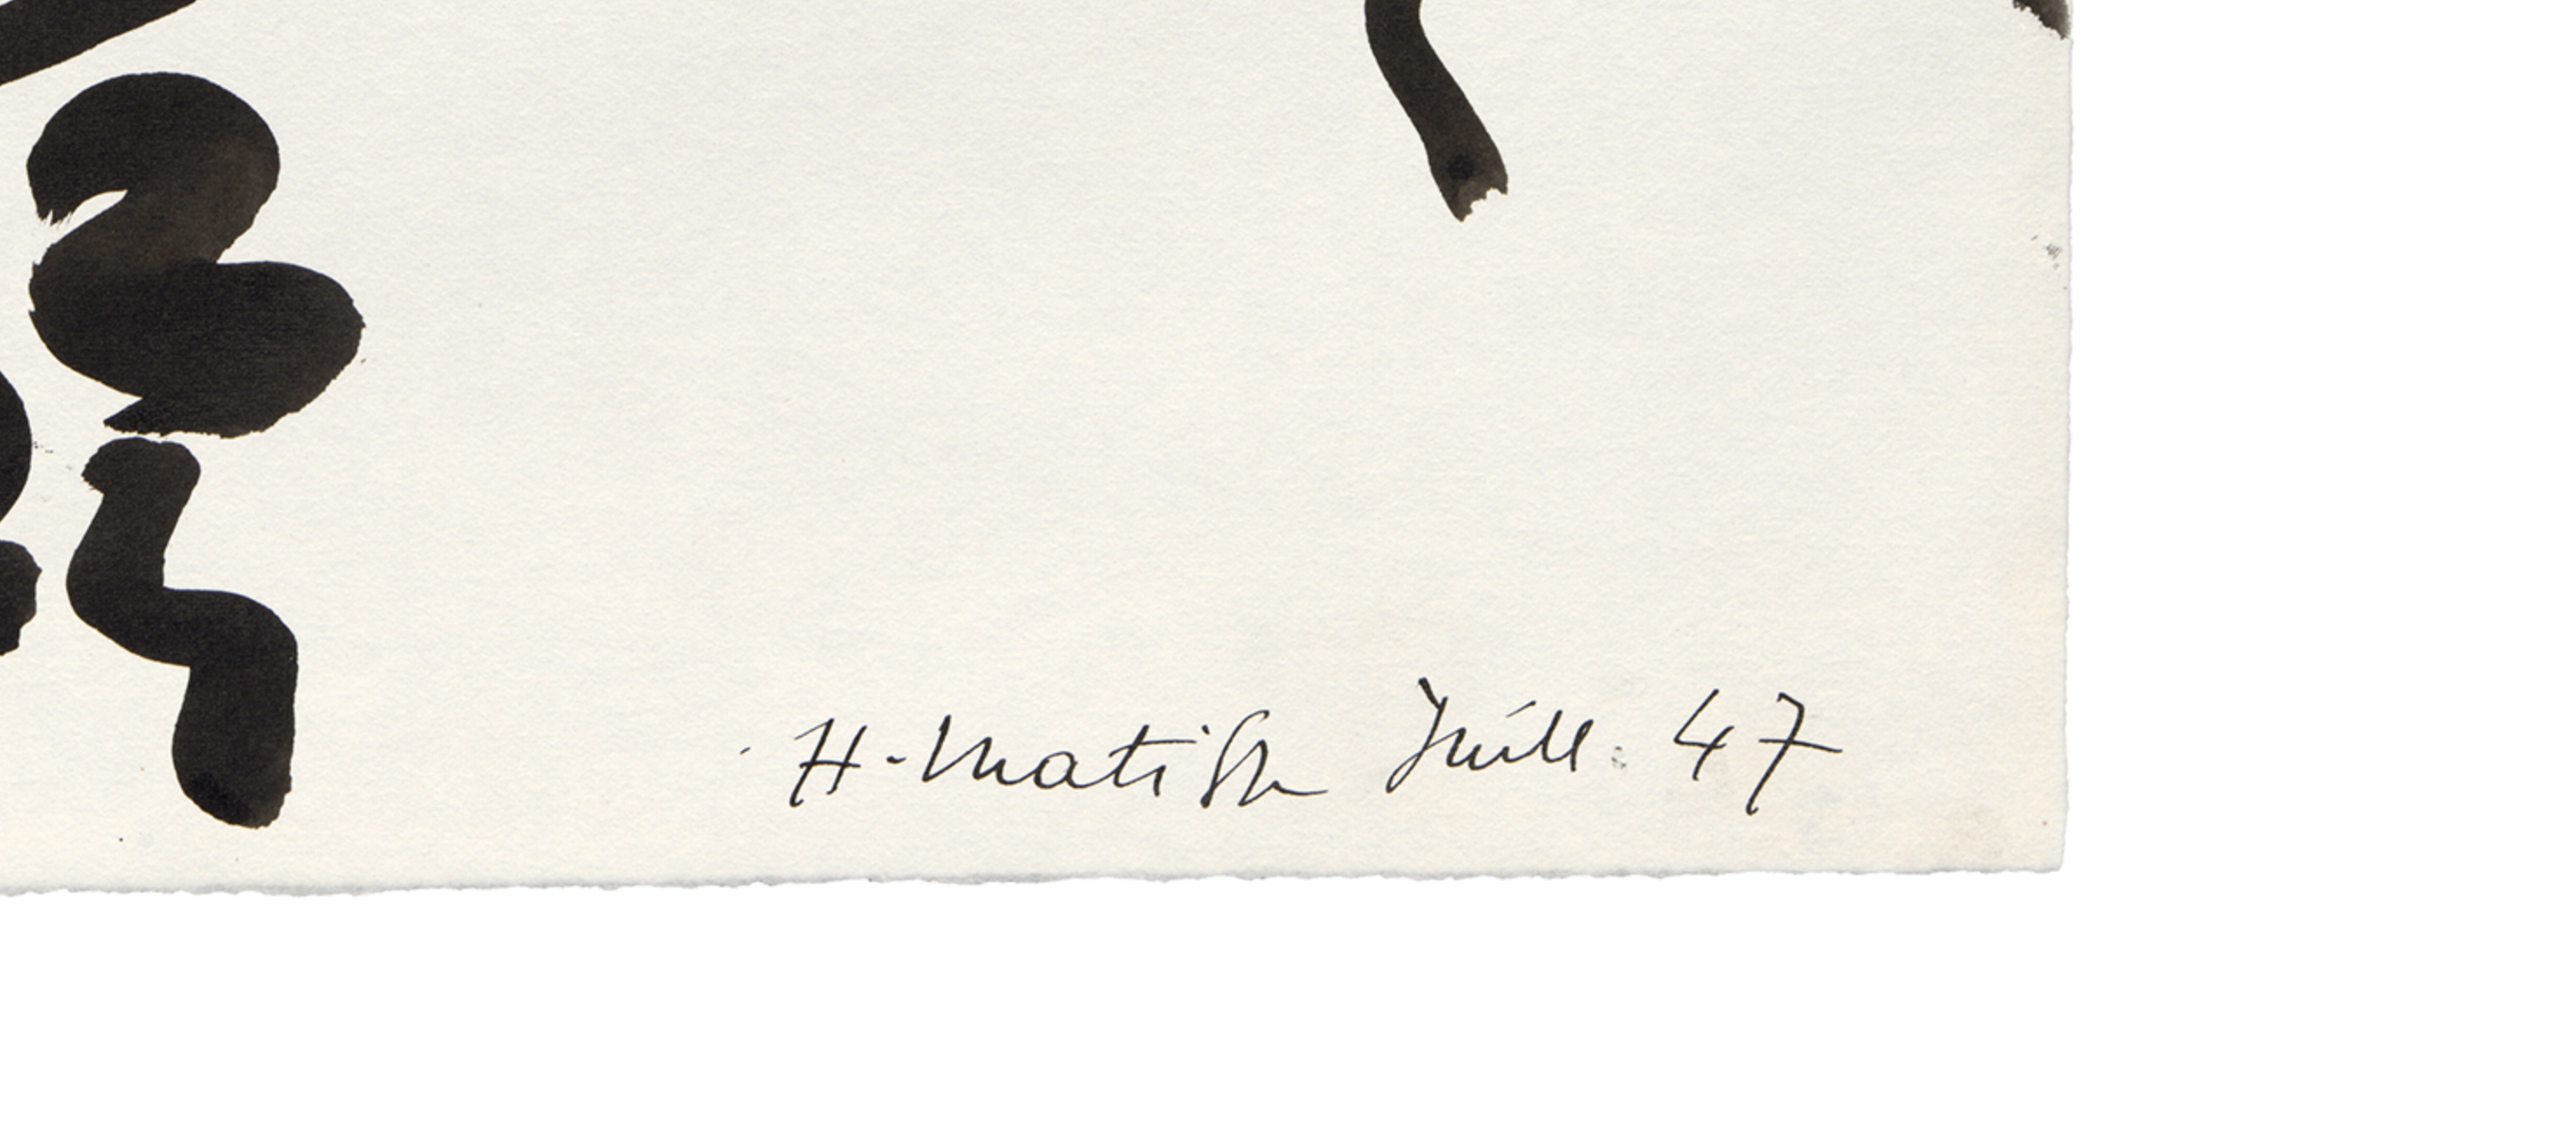 H. Matisse Juill. 47